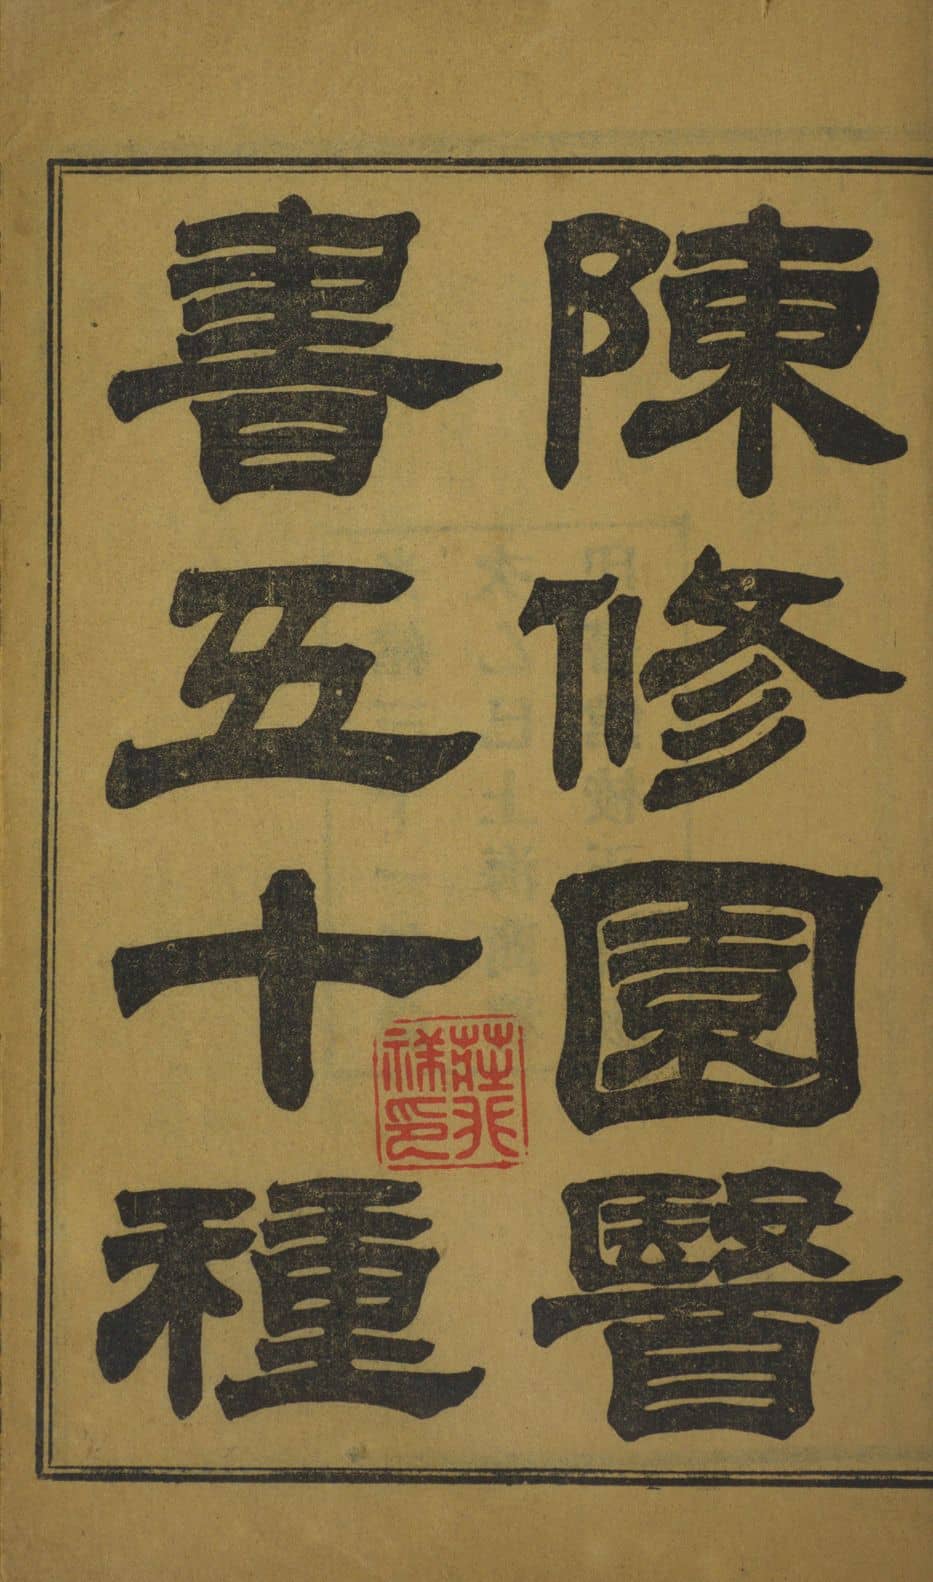 陳修園醫
書五十種